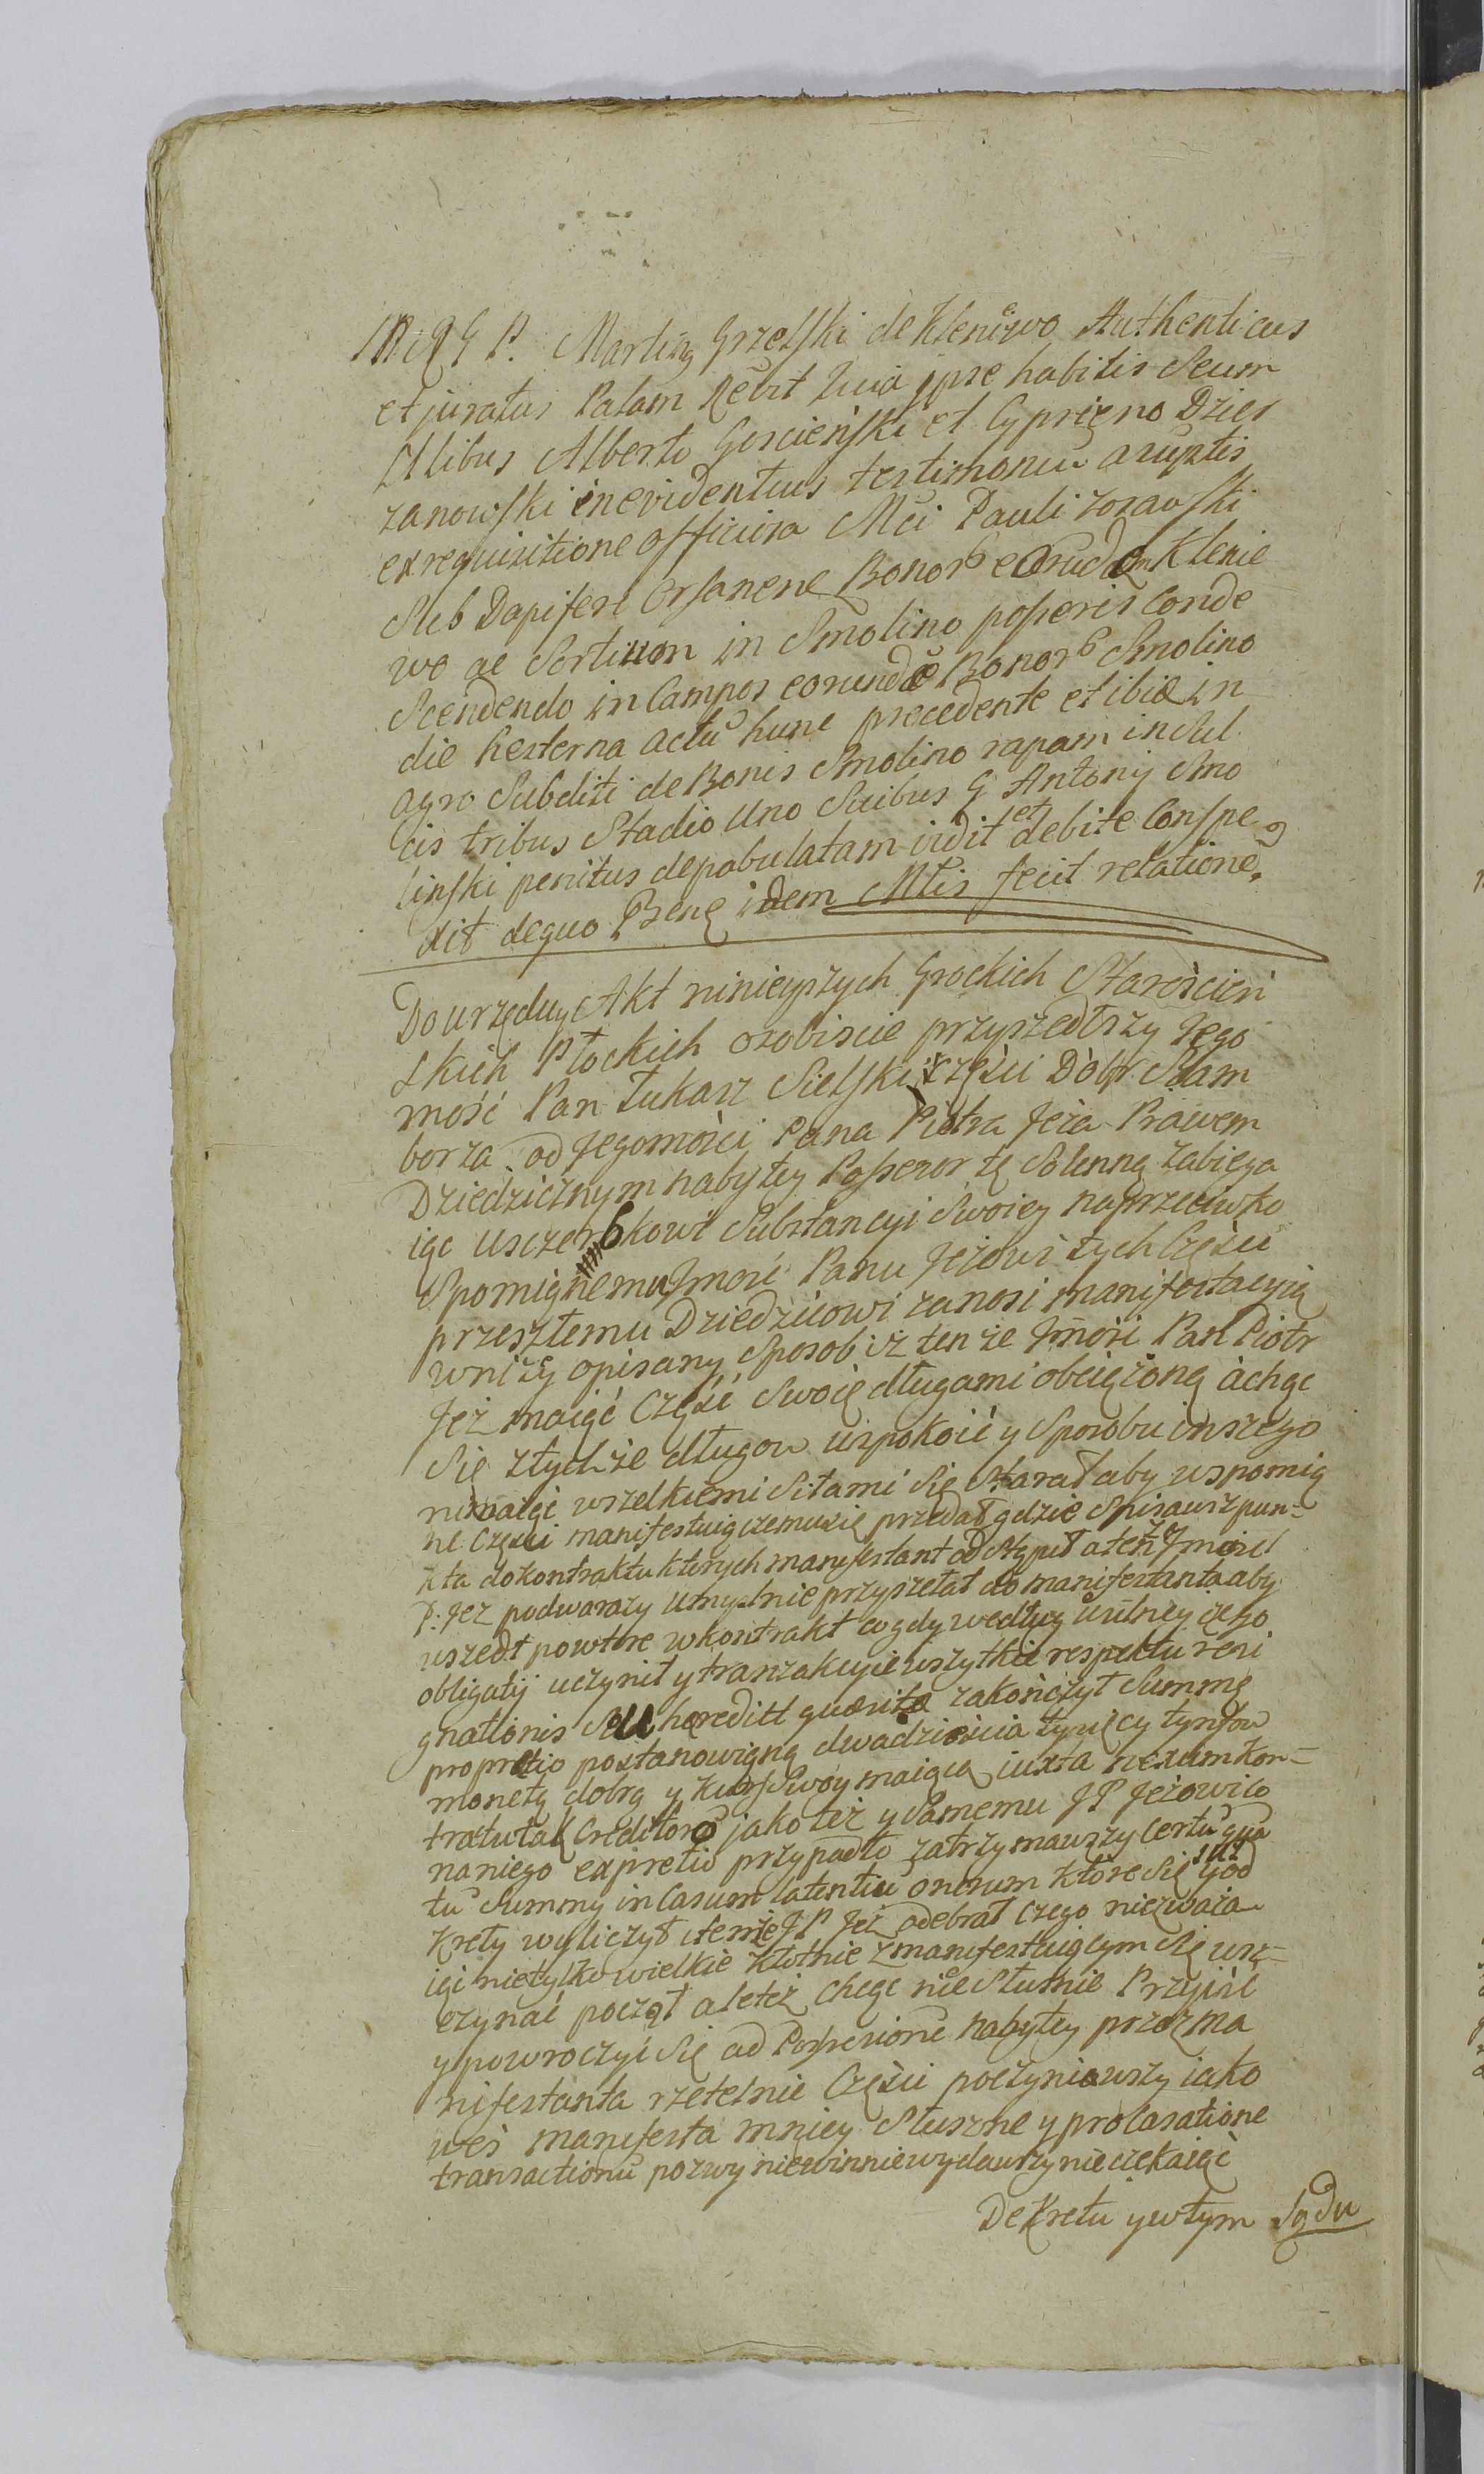 P. Martin Grzelski de Kleniewo Authenticus
et juratus Palam Reĉit quia ipse habitis Secum
Nlibus Alberto Goscieński et Cypriano Dzier
zanowski inevidentius testimoniu asuptis
exrequisitione officiosa Mci Pauli zorawski
Sub Dapiferi Orsanene Bonor eorudem Klenie
wo ac Sortium in Smolino posseris Conde
Scendendo in Campos eorundē Bonor Smolino
die hesterna actū hunc precedente et ibiæ in
agro Subditi de Bonis Smolino rapam in Sul
cis tribus Stadio Uno Suibus G Antonij Smo
linski penitus depabulatam vidit et debite Conspe
xit dequo Psens idem Mlis fecit relatione.
Do urzędu y Akt ninieyszych Grockich Starościń
skich Płockich osobiscie przyszedłszy Jego
mość Pan Łukasz Sielski części Dobr Szam
borza od Jegomości Pana Piotra Jeża Prawem
Dziedzicznym nabytey Possesor tę Solenną zabiega
iąc Usczerbkowi Substancyi Swoiey naprzeciwko
Spomięnemu Jmość Panu Jeżowi tych Części
przeszłemu Dziedzicowi zanosi manifestacyią
wniży opisany Sposob iż ten że Jmość Pan Piotr
Jeż maiąć Część Swoię długami obciążoną a chąc
Się ztych że długow uspokoić y Sposobu inszego
niemaiąc wszelkiemi Siłami Się Starał aby wspomię
ne Części manifestuiączemusię przedał gdzie Spisawszy pun=
kta do kontraktu ktorych manifestant od Stąpił a ten Jmość
P. Jeż podwarazy Umyslnie przyszełał do manifestanta aby
wszedł powtore wkontrakt co gdy według usilney iego
obligatij uczynił y tranzakcyie wszytkie respektu resi
gnationis Seu heredit quæsitæ zakończył Summę
propretio postanowięną dwadzieścia tysięcy tynfow
monetą dobrą y kurs Swoy maiącą iuxta nexum kon=
tractu tak Creditorō jako też y Samemu JP Jeżowi co
naniego expretio przypadło zatrzymawszy certū qua
tū Summy in Casum latentiu onerum ktore Się sur yod
krety wyliczył itemże JP Jeż odebrał czego niezważa
iąc nietylko wielkie kłotnie zmanifestuiącym Się wsz=
czynać począł ale też chcąc nie Słusnie Przyiść
y powroczyć Się ad Possesione nabytey przez ma
nifestanta rzetelnie Części poczyniwszy iako
weś manifesta mniey Słuszne y procasatione
transactionū pozwy niewinnie wydawszy nie czekaiąc
Dekretu y wtym Sądu